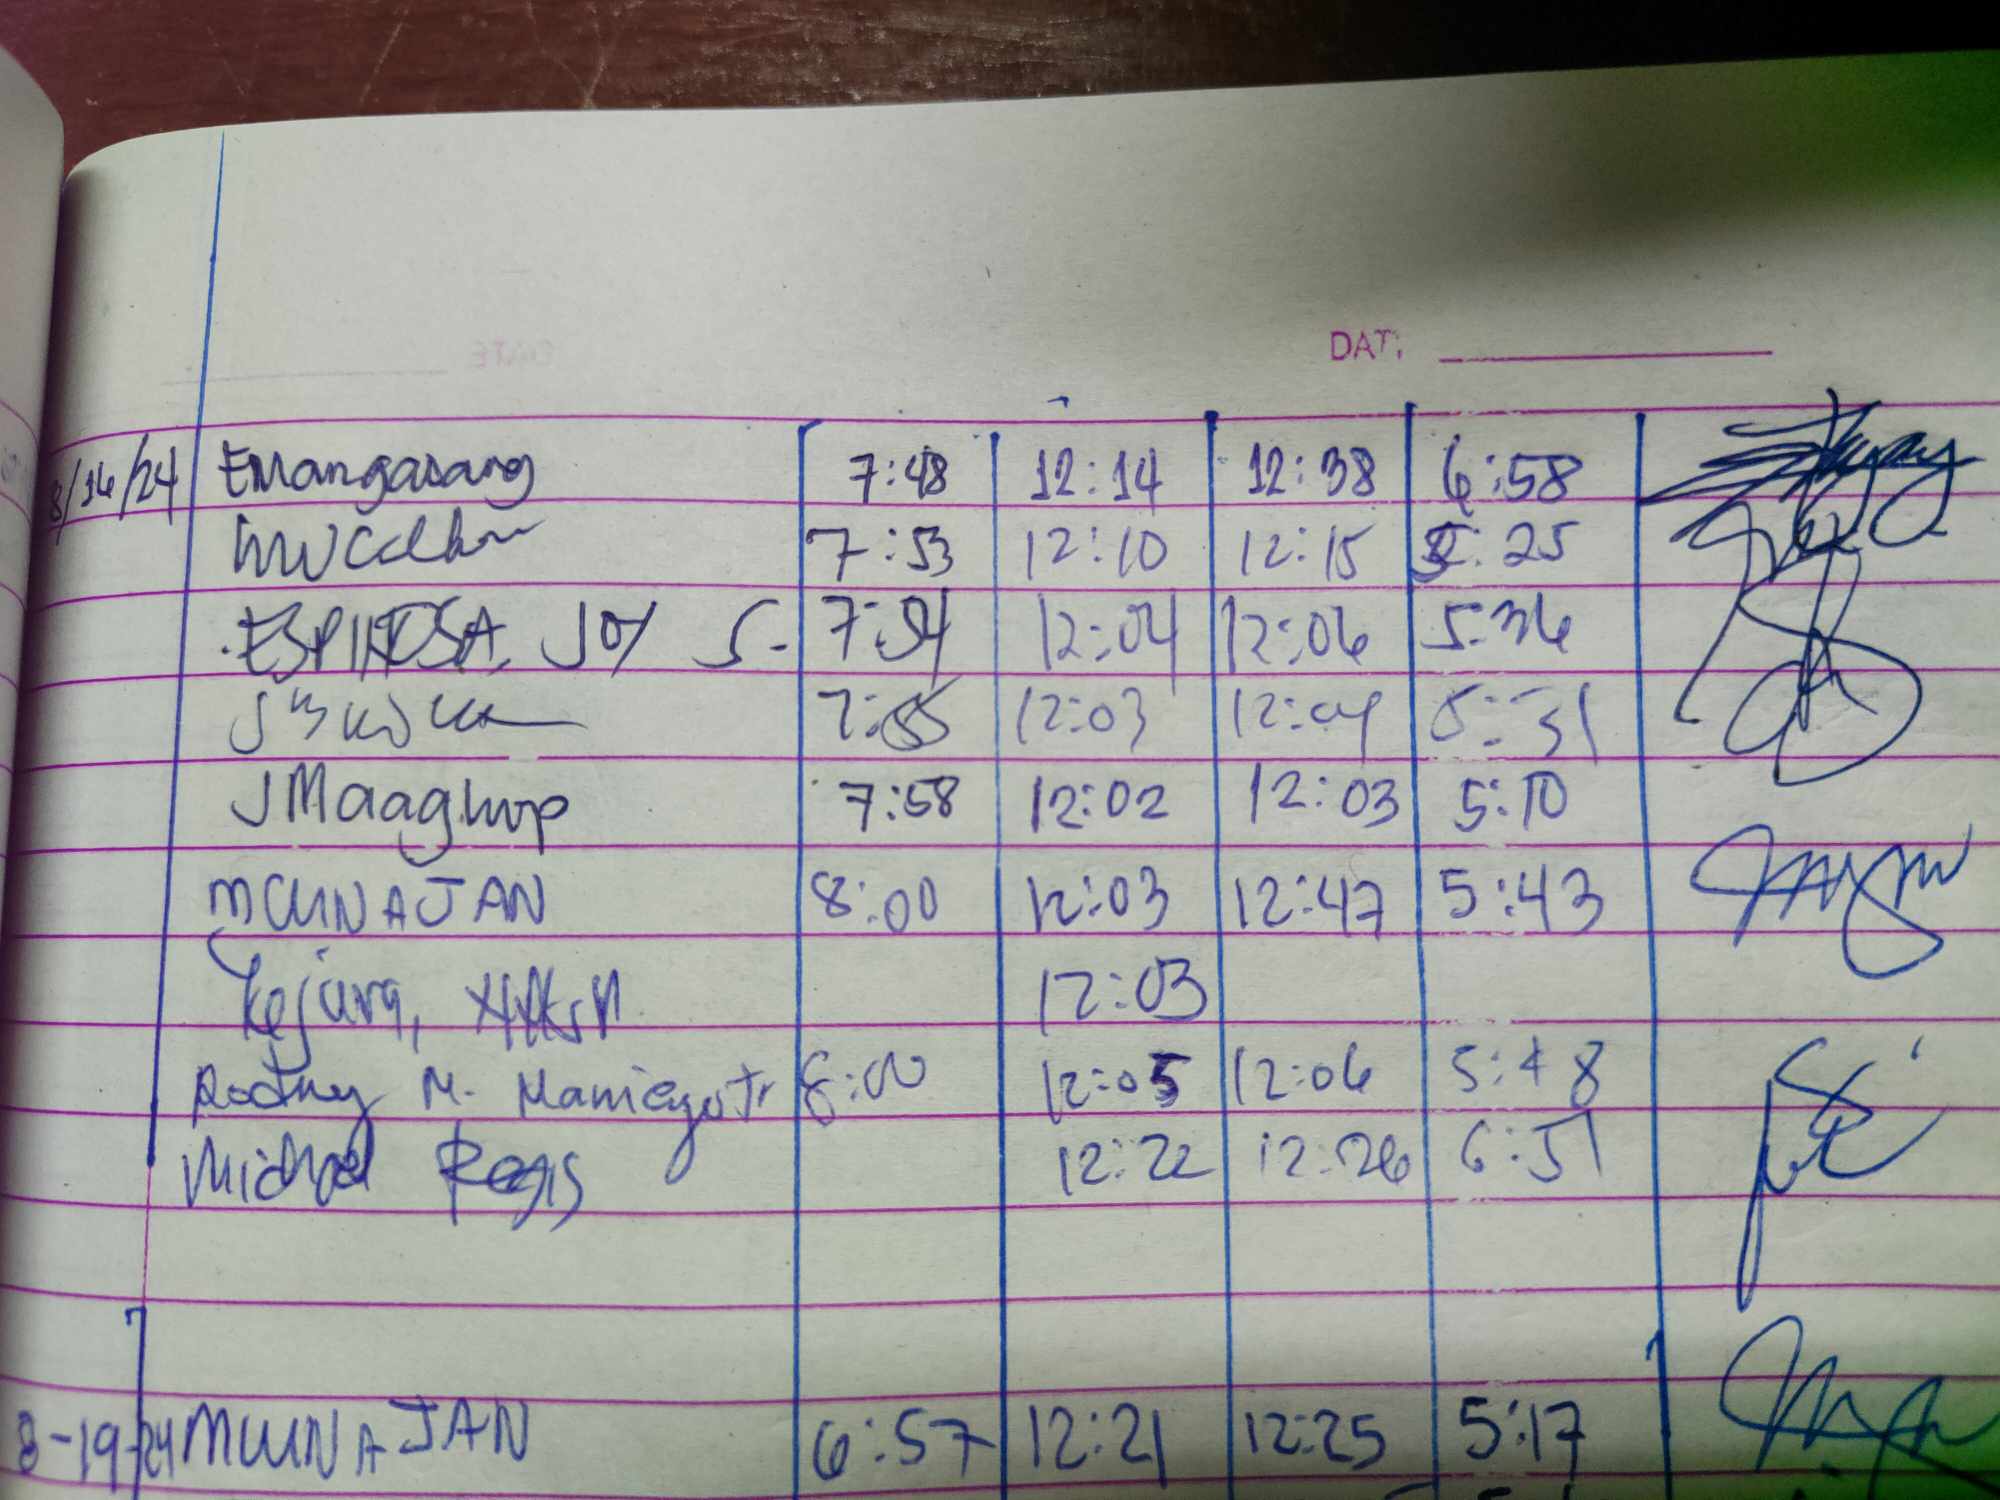 DATE
8/16/24 EMangasang 7:48 12:14 12:38 6:58
7:53 12:10 12:15 5:25
ESPINOSA, JOY S. 7:54 12:04 12:06 5:36
7:55 12:03 12:04 5:31
JMaaghop 7:58 12:02 12:03 5:10
MCUNAJAN 8:00 12:03 12:47 5:43
12:03
Rodney M. Maniego Jr 8:00 12:05 12:06 5:48
Michael Regis 12:22 12:26 6:51
8-19-24 MCUNAJAN 6:57 12:21 12:25 5:17